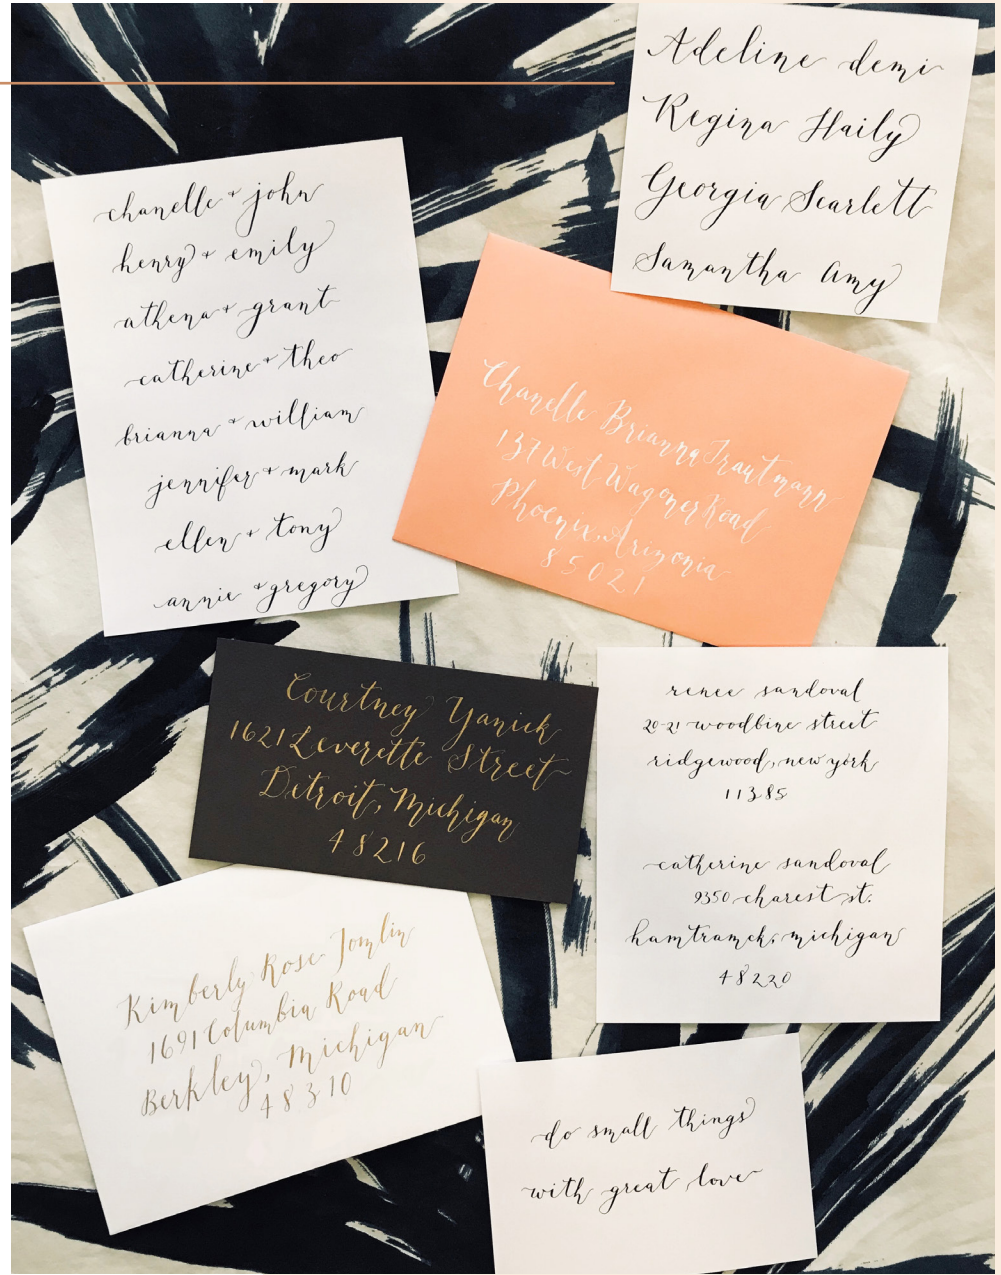 Adeline demi
Regina Haily
Georgia Scarlett
Samantha Amy
chanelle + john
henry + emily
athena + grant
catherine + theo
brianna + william
jennifer + mark
ellen + tony
annie + gregory
Chanelle Brianna Trautmann
137 West Wagoner Road
Phoenix, Arizonia
85021
Courtney Yanick
1621 Leverette Street
Detroit, Michigan
48216
renee sandoval
20-21 woodbine street
ridgewood, new york
11385
catherine sandoval
9350 charest st.
hamtramck, michigan
48220
Kimberly Rose Tomlin
1691 Columbia Road
Berkley, Michigan
48310
do small things
with great love